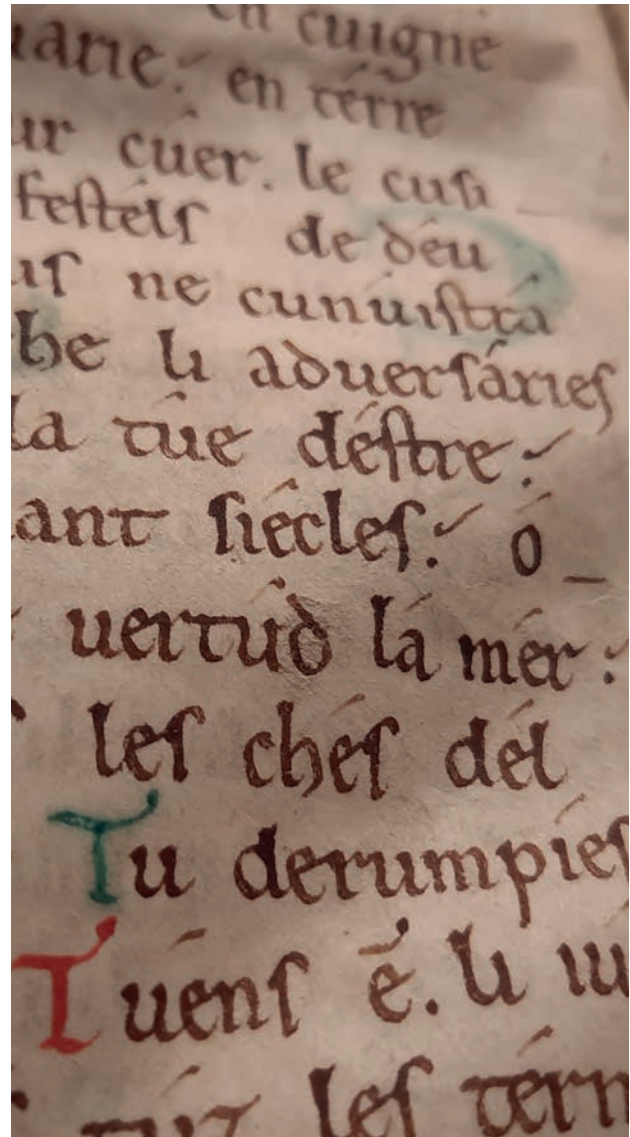 en cuigne
uarie: en térre
ur cúer. le cusi
festeís de déu
us ne cunúistrá
che li aduersáries
la túe déstre:
ant siécles: ó
uertúð lá mér:
les chés dél
Tu derumpíes
Tuéns é. li iu
les térm